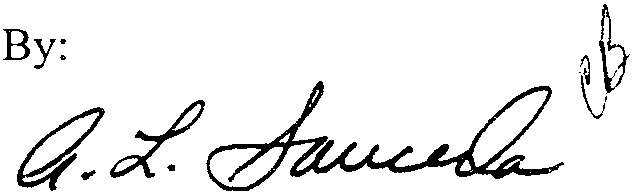 By:
A. L. Sauceda